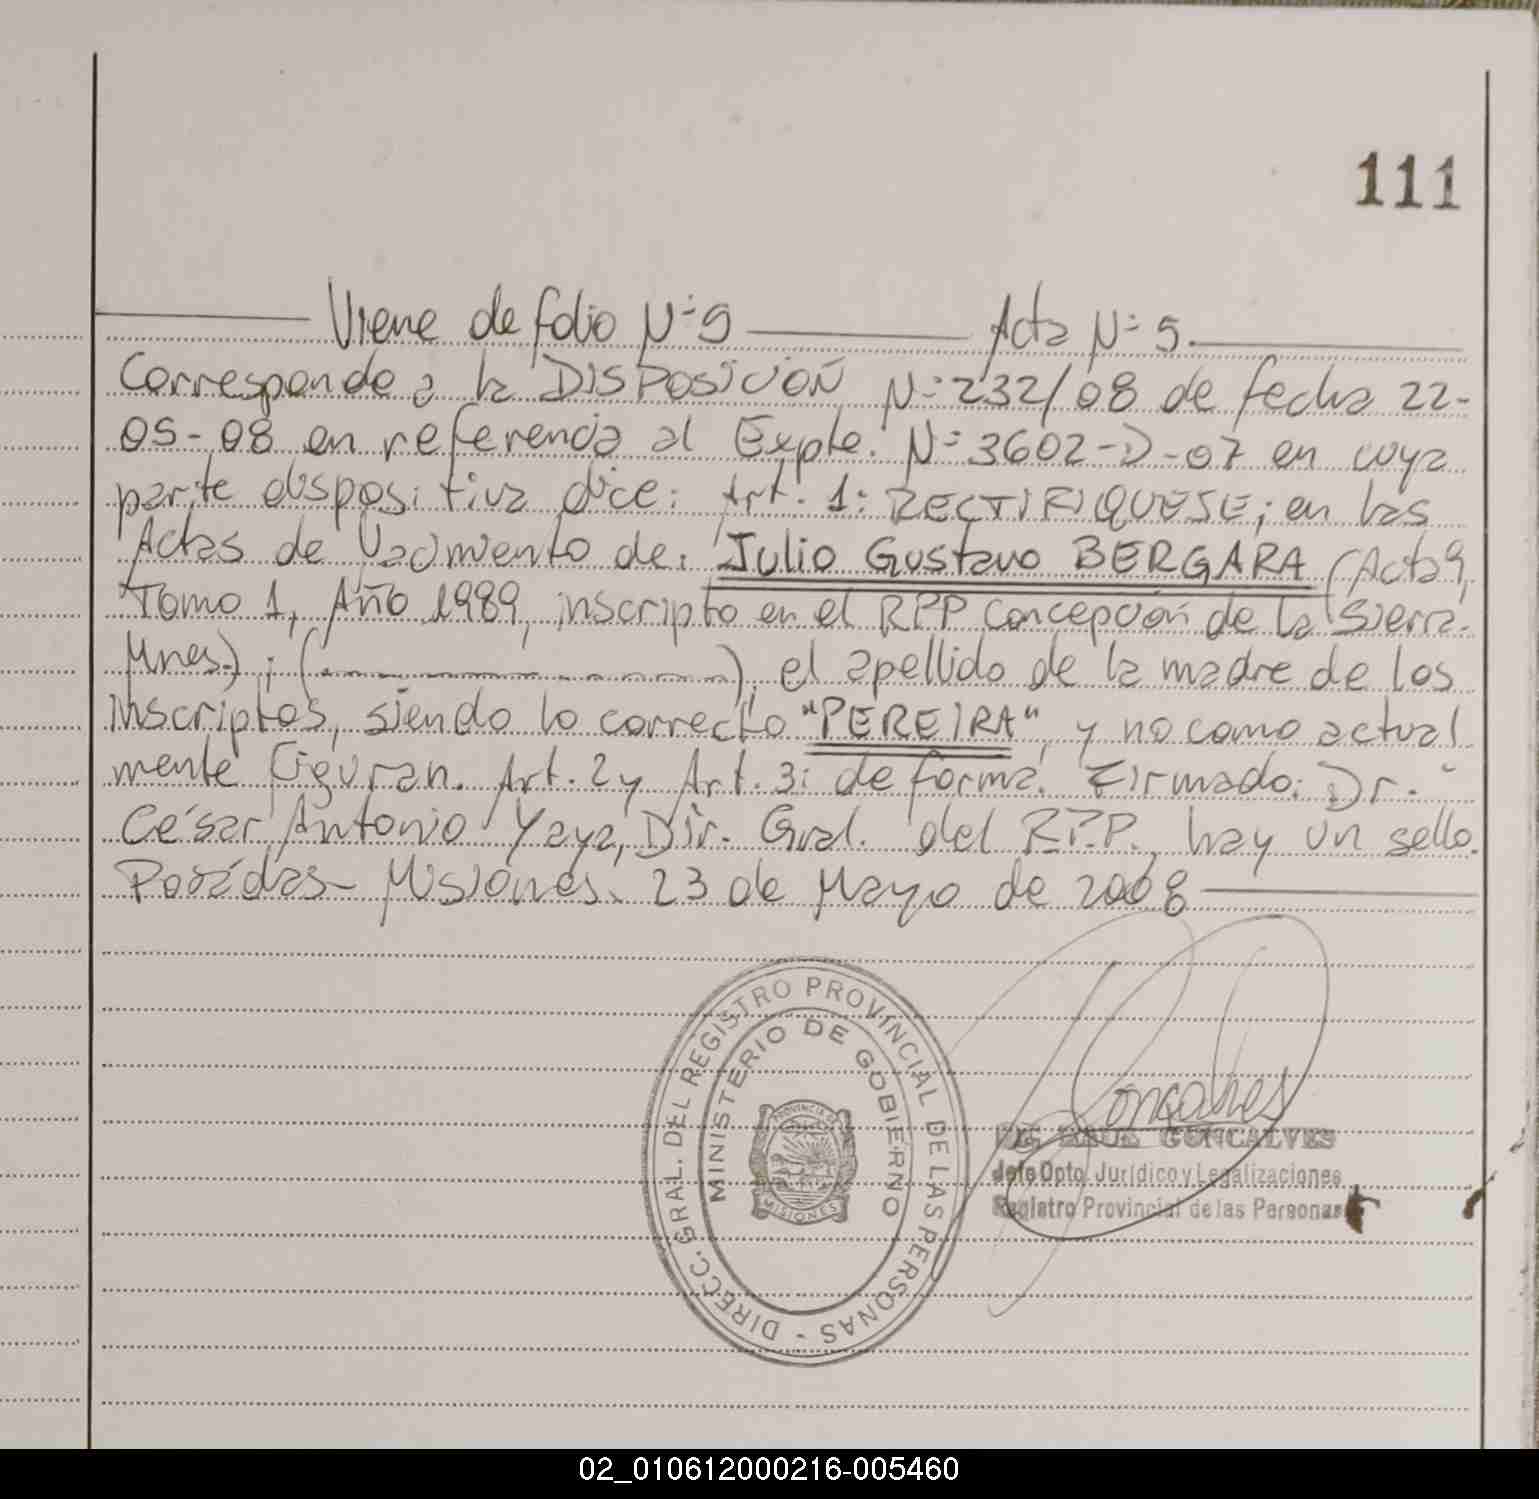 111
Viene de folio Nº 9 Acta Nº 5.
Corresponde a la DISPOSICIÓN Nº 232/08 de fecha 22-
05-08 en referencia al Expte. Nº 3602-D-07 en cuya
parte dispositiva dice: Art. 1: RECTIFIQUESE; en las
Actas de Nacimiento de: Julio Gustavo BERGARA (Acta 9,
Tomo 1, Año 1989, inscripto en el RPP Concepción de la Sierra.
Mnes.); ( ), el apellido de la madre de los
inscriptos, siendo lo correcto "PEREIRA", y no como actual
mente figuran. Art. 2 y Art. 3: de forma. Firmado: Dr.
César Antonio Yaya, Dir. Gral. del R.P.P., hay un sello.
Posadas- Misiones. 23 de Mayo de 2008
DIRECC. GRAL. DEL REGISTRO PROVINCIAL DE LAS PERSONAS -
MINISTERIO DE GOBIERNO
PROVINCIA DE
MISIONES
Goncalves
GONCALVES
Jefe Dpto. Jurídico y Legalizaciones
Registro Provincial de las Personas
02_010612000216-005460